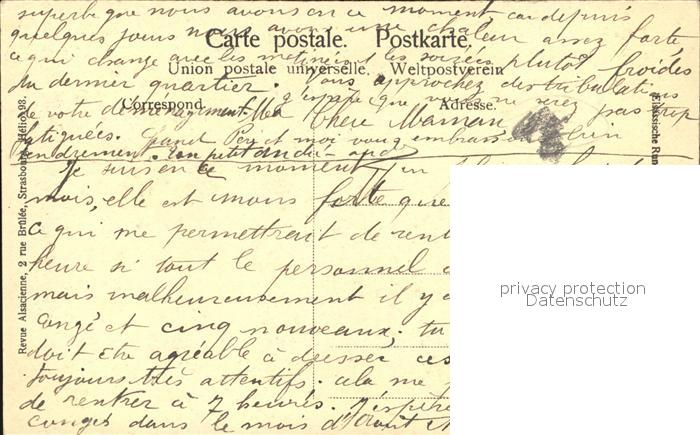 superbe que nous avons en ce moment, car depuis
quelques jours nous avons une chaleur assez forte
Carte postale. Postkarte.
ce qui change avec les matinées et les soirées plutôt froides
Union postale universelle. Weltpostverein
du dernier quartier. Vous approchez des
Correspond. Adresse.
de votre déménagement. j'espère que vous ne serez pas trop
Ma chère Maman
fatiguées. Grand Père et moi vous embrassons bien
tendrement. Ton petit
Je suis en ce moment
mois, elle est moins forte que
ce qui me permettrait de
heure si tout le personnel
mais malheureusement il y a
congé et cinq nouveaux. tu
doit être agréable à dresser ces
toujours très attentifs. cela me
de rentrer à 7 heures. J'espère
congés dans le mois d'Août
Revue Alsacienne, 2 rue Brûlée, Strasbourg. Hélio 98.
Elsässische Run
privacy protection
Datenschutz